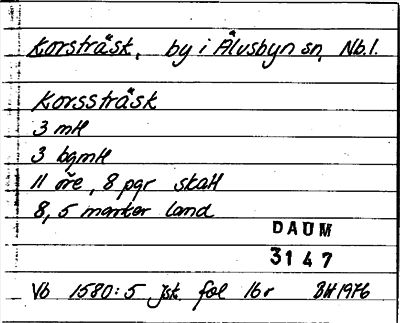 Korsträsk, by i Älvsbyn sn, Nb.l.
Korssträsk
3 mtl
3 bgmtl
11 öre, 8 pgr skatt
8,5 marker land
DAUM
3147
Vb 1580:5 jsk fol 16r BH 1976